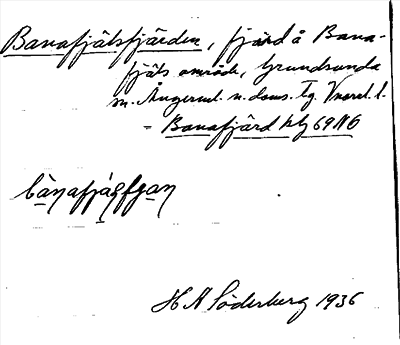 Banafjälsfjärden, fjärd å Bana-
fjäls område, Grundsunda
sn. Ångerml. n. doms. Tg. Vnorrl. l.
- Banafjärd kbj 69 NO
H A Söderberg 1936